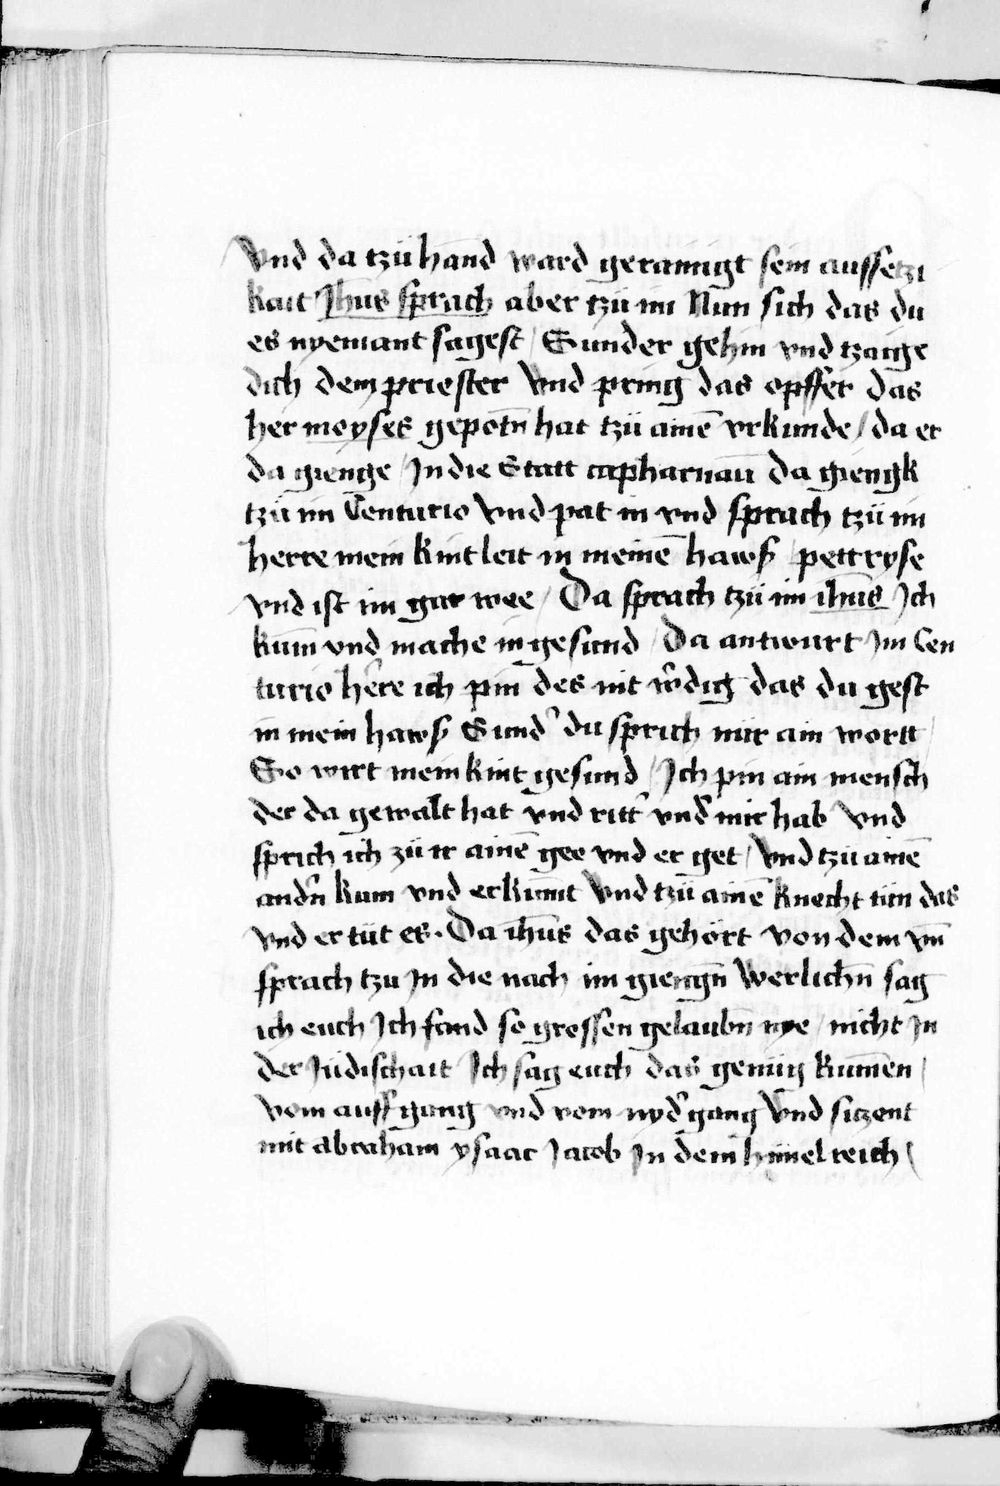 Vnd da tzü hand ward geramigt sein aussetzi
kait Jhūs sprach aber tzü im Nun sich das du
es nyemant sagest / Sunder gehin vnd tzaige
dich dem priester Vnd pring das opffer das
her moyses gepotn̄ hat tzü ainē vrkunde / da er
da gienge / Jn die Statt capharnaū da giengk
tzü im Centurio Vnd pat in vnd sprach tzü im
herre mein kint leit in meinē hawß / pettryse
vnd ist im gar wee / Da sprach tzü im ihūs Jch
kūm vnd mache in gesund / Da antwurt Jm Cen
turio h're ich pin des nit w'dig das du gest
in mein hawß Sund' du sprich mir ain wortt /
So wirt mein kint gesund / Jch pin ain mensch
der da gewalt hat vnd ritt' vnd' mir hab Vnd
sprich ich zü ir ainē gee vnd er get / Vnd tzü ainē
andn̄ kum vnd er kūmt Vnd tzü ainē knecht tün das
vnd er tüt es · Da ihūs das gehört von dem vm̄
sprach tzu Jn die nach im giengn̄ Werlichn̄ sag
ich euch Jch fand so grossen gelaubn̄ nye / nicht Jn
der Jüdischait Jch sag euch das genüg kūmen /
vom auffgang vnd vom nyd'gang Vnd sitzent
mit abraham ysaac Jacob Jn dem himel reich /